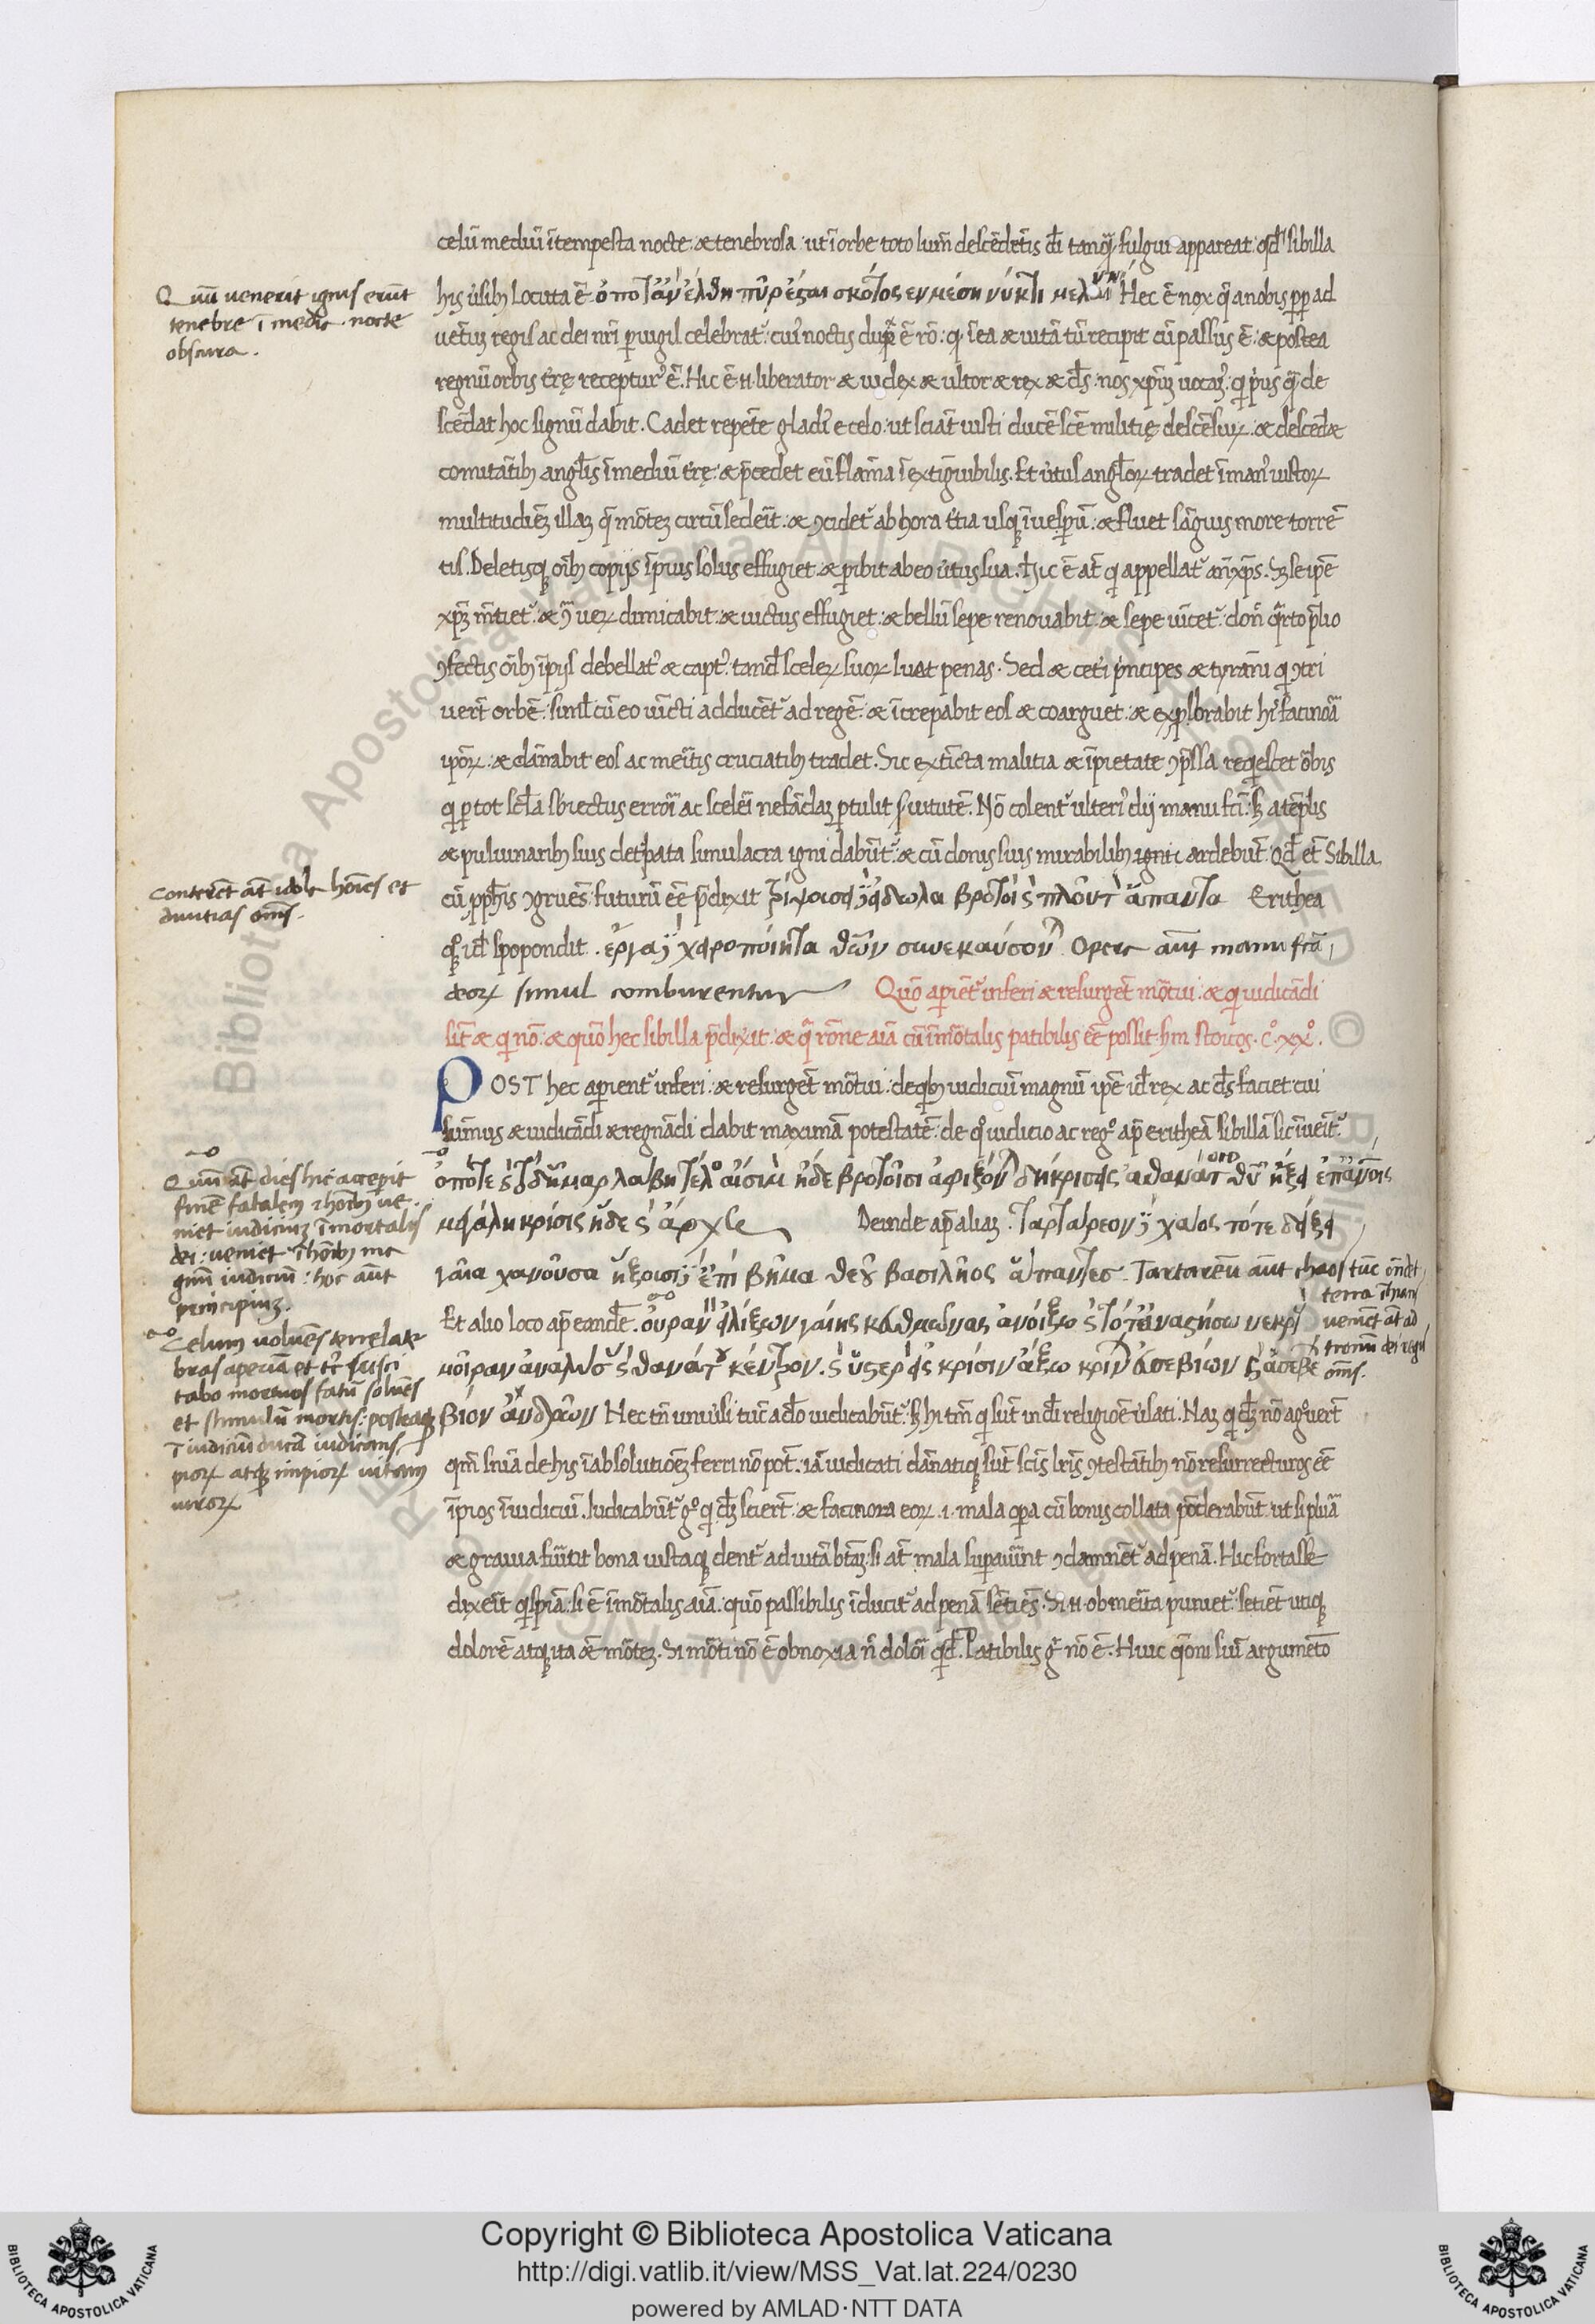 celũ mediũ ĩtempesta nocte & tenebrosa ut ĩ orbe toto lum̃ descẽdẽtis dĩ tanq̃ fulgur appareat qđ sibilla
his ũsib locuta ẽ ὁπόταν ἔλθη πῦρ ἔσται σκότος εν μέση νύκτι μελαίνη Hec ẽ nox q̃ a nobis ꝓp ad
uẽtuz regis ac dei nr̃i ꝑuigil celebrat᷑ cui᷒ noctis duplex ẽ rõ q̃ ĩ ea & uitã tũ recipit cũ passus ẽ & postea
regnũ orbis tr̃ę receptur᷒ ẽ. Hic ẽ .n. liberator & iudex & ultor & rex & ds̃ nos xp̃m uocam᷒ q̃ prius q̃ de
scẽdat hoc signũ dabit. Cadet repẽte gladi᷒ e celo ut sciãt iusti ducẽ scẽ militię descẽsuꝝ & descẽdet
comitãtib angl̃is ĩ mediũ tr̃ę & p̃cedet eũ flam̃a ĩextĩguibilis. Et uirtus angl̃oꝝ tradet ĩ man᷒ iustoꝝ
multitudiẽz illaz q̃ mõtez circũsedeĩt & ꝯcidet᷑ ab hora tertia usqꝫ ĩ uesꝑũ & fluet sãguis more torrẽ
tis. Deletisqꝫ oĩb copijs ĩpius solus effugiet & ꝑibit ab eo uirtus sua. Hic ẽ at̃ qui appellat᷑ ãtixp̃s. Sꝫ se ipẽ
xp̃z mẽtiet᷑ & ꝯ̃ ueꝝ dimicabit & uictus effugiet & bellũ sepe renouabit & sepe uĩcet᷑ doñ q̃rto p̃lio
ꝯfectis oĩb ĩpijs debellat᷒ & capt᷒ tand̃ sceleꝝ suoꝝ luat penas. Sed & ceti p̃ncipes & tyrãni qui ꝯtri
uert̃ orbẽ siml̃ cũ eo uĩcti adducẽt᷑ ad regẽ & ĩcrepabit eos & coarguet & explorabit his facinõa
ipõꝝ & dãnabit eos ac meĩtis cruciatib tradet. Sic extĩcta malitia & ĩpietate ꝯp̃ssa reqescet õbis
qui ꝑ tot scl̃a sbiectus errõi ac scelẽi nefãdaz ꝑtulit s̃uitutẽ. Nõ colent᷑ ulteri᷒ dij manu fcĩ sꝫ a tẽplis
& puluinarib suis detr̃bata simulacra igni dabũt᷑ & cũ donis suis mirabilib igni ardebũt. Qđ et̃ Sibilla
cũ ꝓph̃is ꝯgruẽs futurũ eẽ p̃dixit ῥίψουσιν εἴδωλα βροτοὶ ς πλοῦτον ἅπαντα Erithea
qꝫ id spopondit. ἔργα χειροποίητα θεῶν συνεκαύσονται Opera aũt manu fcã
deoꝝ simul comburentur Quõ apiẽt᷑ inferi & resurgẽt mõtui & qui iudicãdi
sĩt & qui nõ & quõ hec sibilla p̃dixit & q̃ rõne aĩa cũ ĩmõtalis patibilis eẽ possit sm̃ stoicos. c̊. xx̊.
POST hec apient᷑ inferi & resurgẽt mõtui deqb iudiciũ magnũ ipẽ id̃ rex ac ds̃ faciet cui
sum̃us & iudicãdi & regnãdi dabit maximã potestatẽ de qo iudicio ac reg° ap̃ eritheã sibillã sic ĩueĩt᷑
ὁπότε ς τόδ᾽ ἦμαρ λάβη τέλος αἴσιμ ἠδὲ βροτοῖσι ἀφίξονται δὴ κρίσις ἀθανάτων θῦ ἥξει ἐπ᾽ ἀνοις
μεγάλη κρίσις ἠδὲ ς ἀρχή Deinde ap̃ aliaz. Ταρτάρεον χάος τότε δείξει
γαῖα χανοῦσα ἥξουσιν ἐπὶ βῆμα θεοῦ βασιλῆος ἅπαντες Tartareũ aũt chaos tũc oñdet
terra ĩhians
Et alio loco ap̃ eandẽ. οὐρανὸν εἱλίξω γαίης κευθμῶνας ἀνοίξω ς τότε ἀναστήσω νεκροὺς
ueniẽt at̃ ad
μοῖραν ἀναλύσας ς θανάτου κέντρον. ς ὕστερον εἰς κρίσιν ἄξω κρίνων εὐσεβέων ς ἀσεβέων
tronũ dei regis
om̃s.
βίον ἀνδρῶν Hec tñ uniũsi tũc a dõ iudicabũt᷑ sꝫ hi tm̃ qui sũt in dĩ religiõe ũsati. Naz qui dẽ nõ agouert̃
qm̃ snĩa de his ĩ absolutiõez ferri nõ pot̃. iã iudicati dãnatiqꝫ sũt scĩs lr̃is ꝯtestãtib nõ resurrecturos eẽ
ĩpios ĩ iudiciũ. Iudicabũt᷑ go qui dẽ sciert̃ & facinora eoꝝ .i. mala oꝑa cũ bonis collata põderabũt᷑ ut si plũa
& grauia fuĩt bona iustaqꝫ dent᷑ ad uitã btãz si at̃ mala suꝑauĩnt ꝯdamnẽt᷑ ad penã. Hic fortasse
dixeĩt qspiã si ẽ ĩmõtalis aĩa quõ passibilis ĩducit᷑ ad penã sẽtiẽs. Si .n. ob meĩta puniet᷑ sẽtiet utiqꝫ
dolorẽ atqꝫ ita & mõtez. Si mõti nõ ẽ obnoxia ñ dolõi qd̃. Patibilis g nõ ẽ. Huic q̃oni siũ argumẽto
Quũ uenerit ignis erũt
tenebre ĩ media nocte
obscura.
Conterẽt at̃ idola hoĩes et
diuitias om̃s.
Quũ at̃ dies hic acceperit
finẽ fatalem & hoĩb ue
niet iudiciuz ĩmortalis
dei: ueniet ĩ hoĩbꝫ ma
gnũ iudiciũ: hoc aũt
principiuz.
Celum uoluẽs terre late
bras aperiã et tc̃ susci
tabo mortuos fatũ soluẽs
et stimulũ mortis: posteaqꝫ
ĩ iudiciũ ducã iudicans
pioꝝ atqꝫ impioꝝ uitam
uiroꝝ
Copyright © Biblioteca Apostolica Vaticana
http://digi.vatlib.it/view/MSS_Vat.lat.224/0230
powered by AMLAD·NTT DATA
BIBLIOTECA APOSTOLICA VATICANA
BIBLIOTECA APOSTOLICA VATICANA